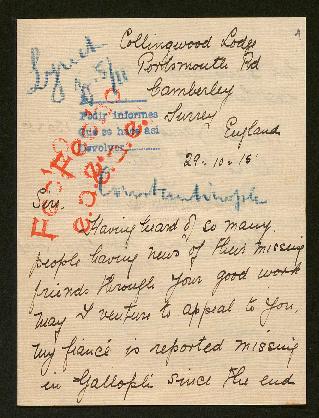 Collingwood Lodge
Portsmouth Rd
Camberley
Surrey
England
Pedir informes
que se hace asi
Devolver
29-10-15
Constantinople
Sir.
Having heard of so many
people having news of their missing
friends through your good work
may I venture to appeal to you.
My fiancé is reported missing
in Gallopli since the end